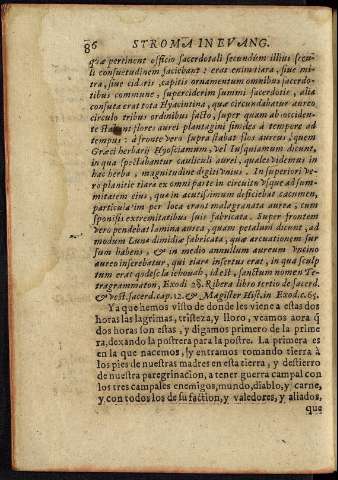 86 STROMA IN EVANG.
quæ pertinent officio sacerdotali secundùm illius secu-
li consuetudinem faciebant: erat enim tiara, siue mi-
tra, siue cidaris, capitis ornamentum omnibus sacerdo-
tibus commune, super ciderim summi sacerdotis, alia
consuta erat tota Hyacintina, quæ circundabatur aureo
circulo tribus ordinibus facto, super quam ab occiden-
te stabant flores aurei plantagini similes à tempore ad
tempus: à fronte verò supra stabat flos aureus, quem
Græci herbarij Hyosciamum, vel Iusquiamum dicunt,
in qua spectabantur cauliculi aurei, quales videmus in
hac herba, magnitudine digiti vnius. In superiori ve-
ro planitie tiaræ ex omni parte in circuitu vsque ad sum-
mitatem eius, quæ in acutissimum deficiebat cacumen,
particulatim per loca erant malogranata aurea, cum
sponsis extremitatibus suis fabricata. Super frontem
vero pendebat lamina aurea, quam petalum dicunt, ad
modum Lunæ dimidiæ fabricata, quæ arcuationem sur
sum habens, & in medio annulum aureum vncino
aureo inserebatur, qui tiaræ insertus erat, in qua sculp
tum erat qodesc la iehouah, id est, sanctum nomen Te-
tragrammaton, Exodi 28. Ribera libro tertio de sacerd.
& vest. sacerd. cap. 12. & Magister Hist. in Exod. c. 65.
Ya que hemos visto de donde les viene a estas dos
horas las lagrimas, tristeza, y lloro, veamos aora q̃
dos horas son estas, y digamos primero de la prime
ra, dexando la postrera para la postre. La primera es
en la que nacemos, y entramos tomando tierra à
los pies de nuestras madres en esta tierra, y destierro
de nuestra peregrinacion, a tener guerra campal con
los tres campales enemigos, mundo, diablo, y carne,
y con todos los de su faction, y valedores, y aliados,
que